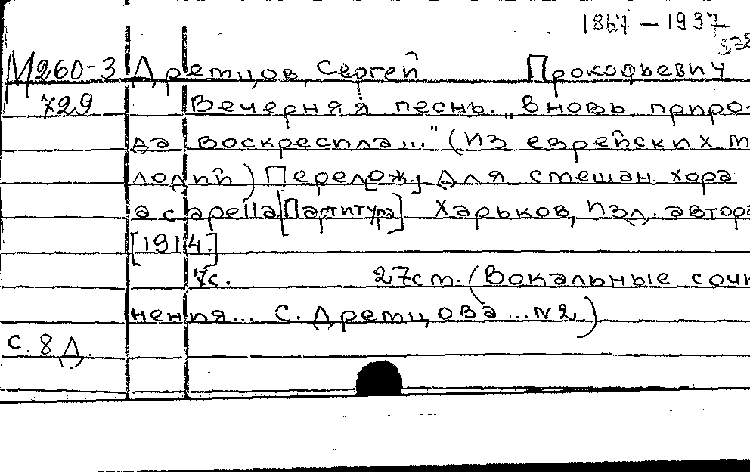 1867 – 1937
М260-3 Дремцов, Сергей Прокофьевич
729 Вечерняя песнь. „Вновь приро-
да воскресила..." (Из еврейских м
лодий) Перелож. для смешан. хора
a capella [Партитура] Харьков, Изд. автора
[1914.]
7с. 27см. (Вокальные сочи
нения... С. Дремцова... №2.)
С. 8 Д.